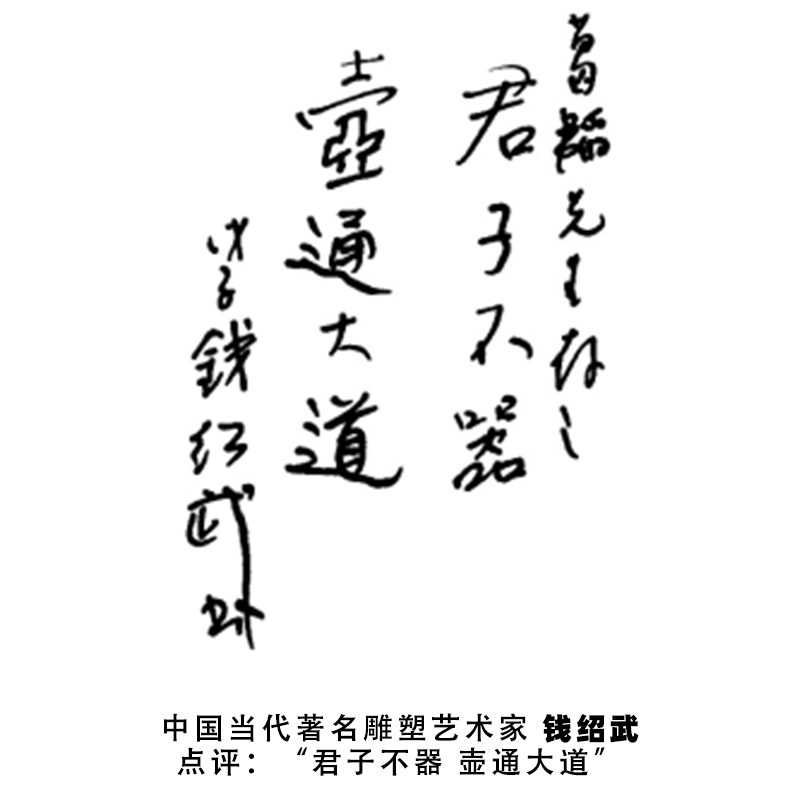 葛韬先生存之
君子不器
壺通大道
戊子钱绍武
中国当代著名雕塑艺术家 钱绍武
点评：“君子不器 壶通大道”